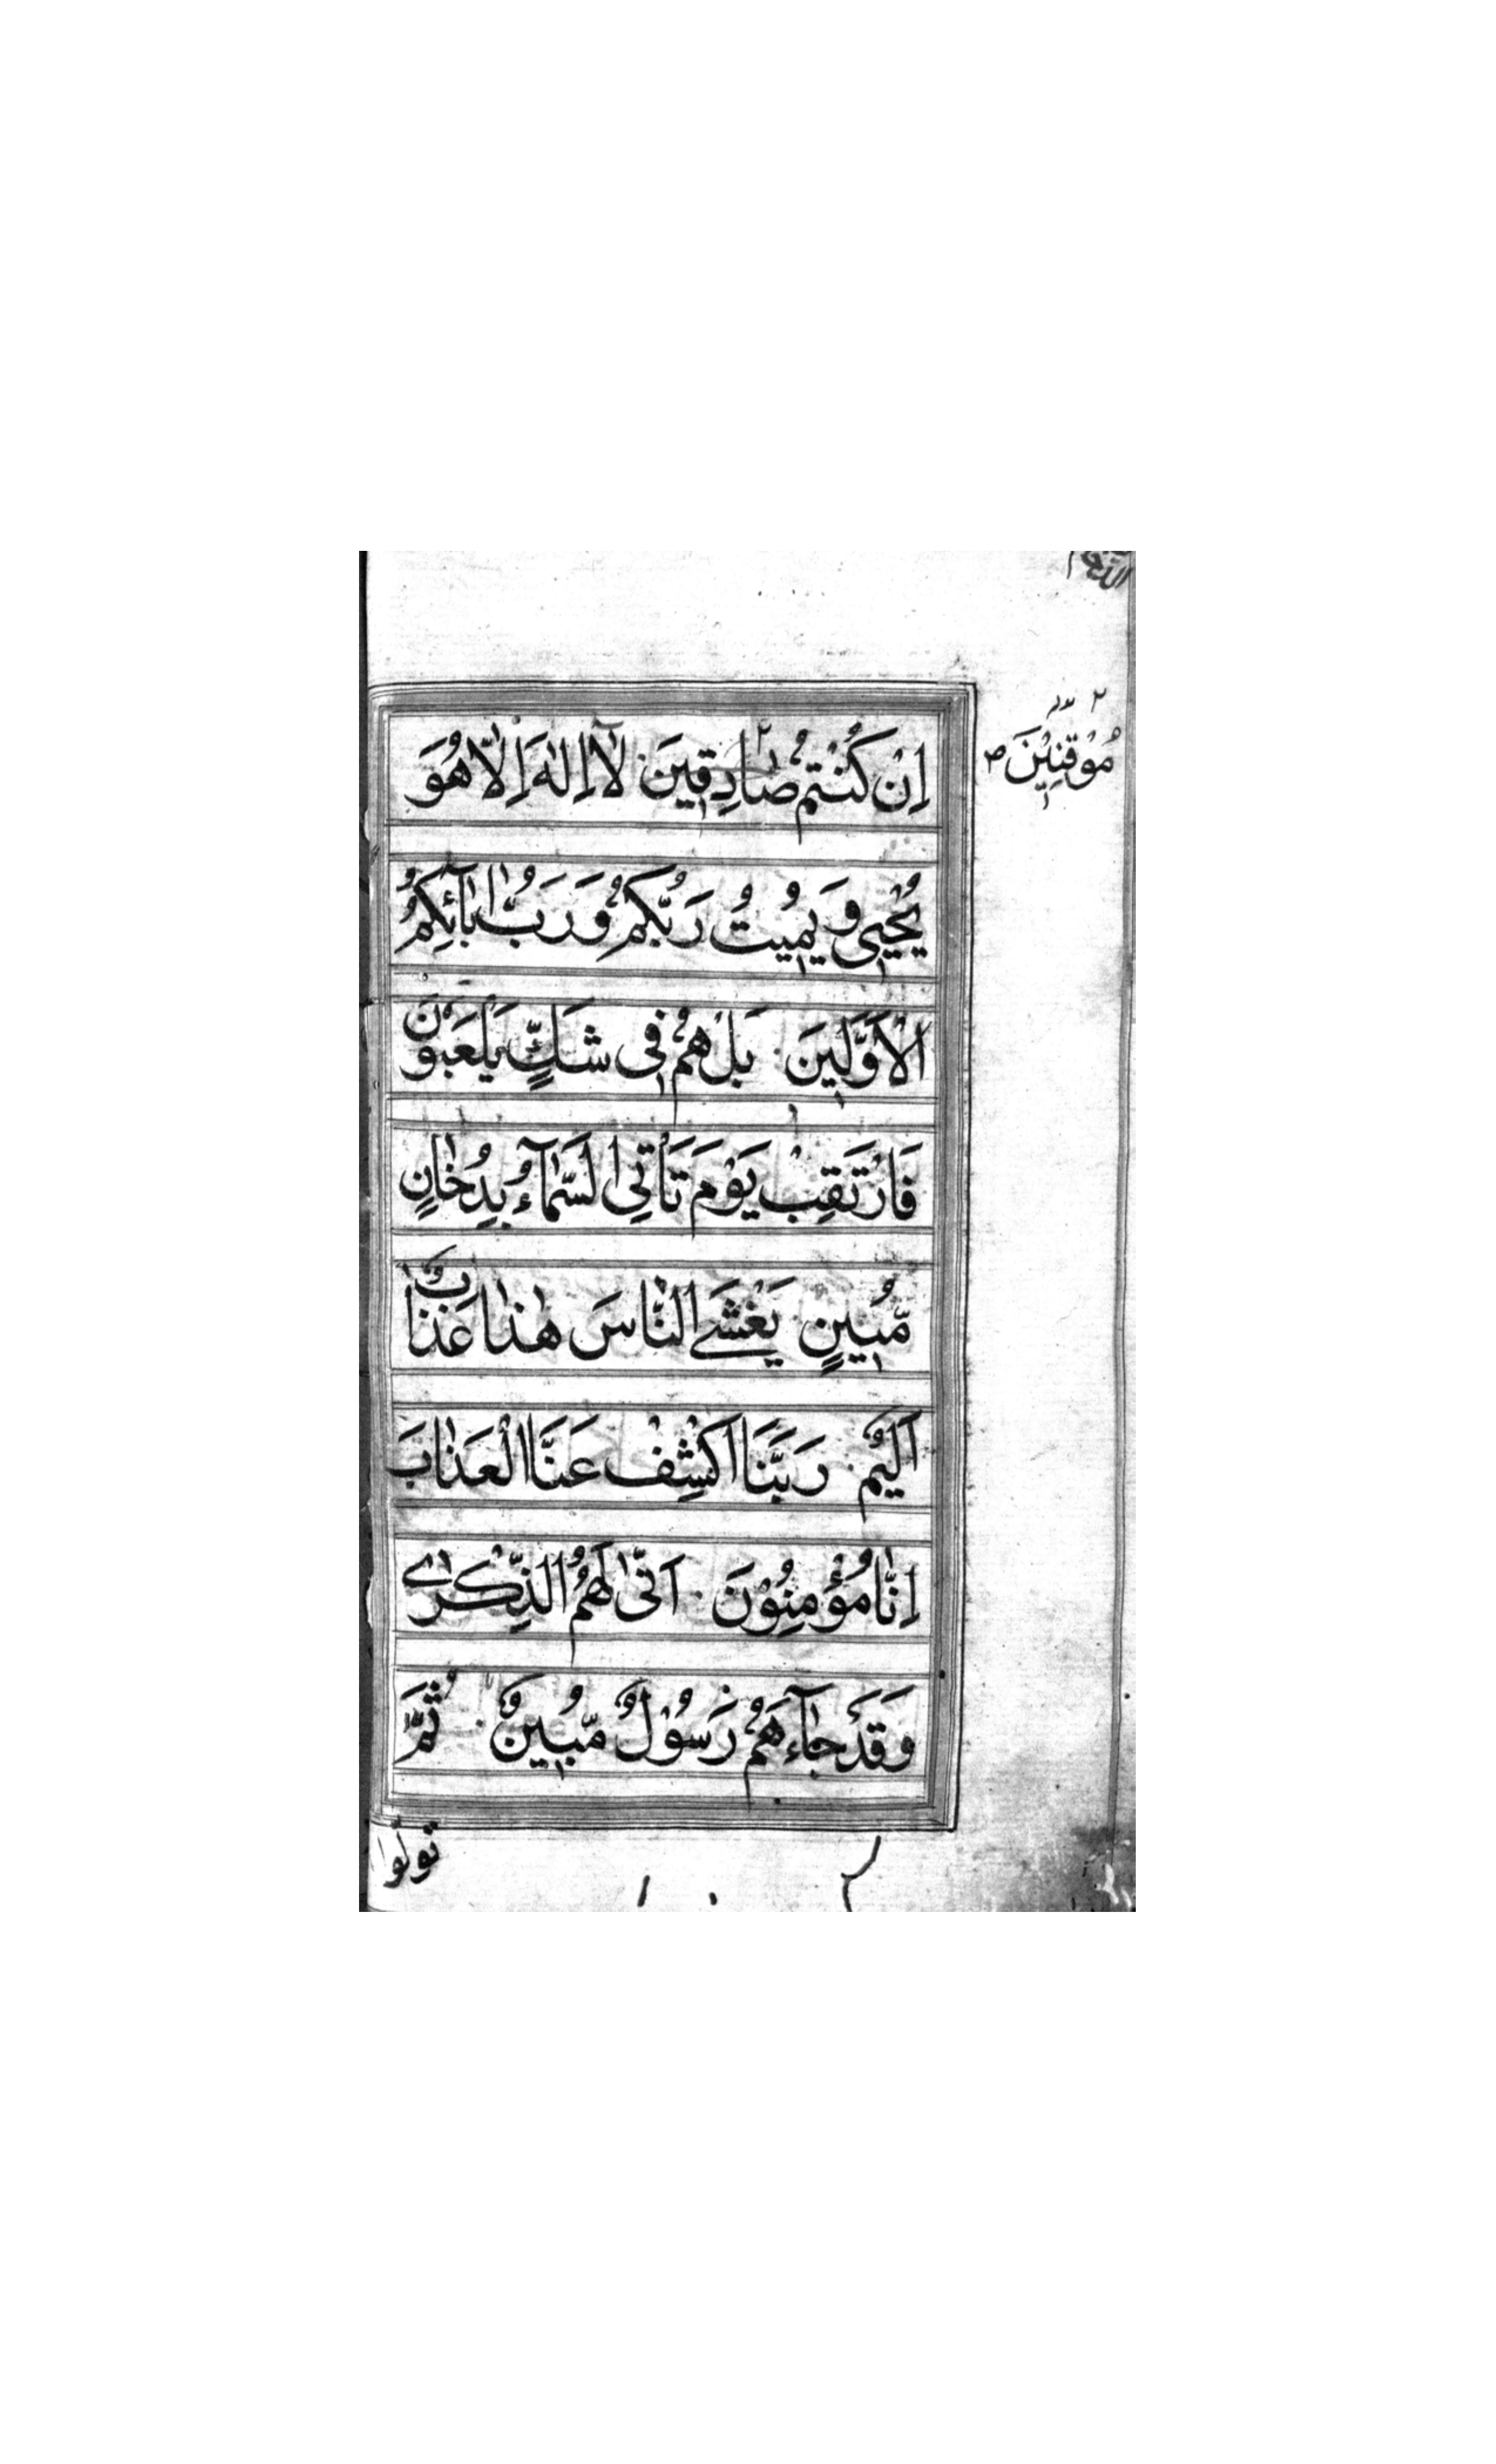 اِنْ كُنْتُمْ صَادِقِينَ لَآ اِلٰهَ اِلَّا هُوَ
مُوْقِنِيْنَ ص
يُحْيٖي وَيُمِيتُ رَبُّكُمْ وَرَبُّ اٰبَآئِكُمُ
الْاَوَّلِينَ بَلْ هُمْ فِى شَكٍّ يَلْعَبُوْنَ
فَارْتَقِبْ يَوْمَ تَأْتِى السَّمَآءُ بِدُخَانٍ
مُّبِينٍ يَغْشَے النَّاسَ هٰذَا عَذَابٌ
اَلِيْمٌ رَبَّنَا اكْشِفْ عَنَّا الْعَذَابَ
اِنَّا مُؤْمِنُوْنَ اَنّٰى لَهُمُ الذِّكْرٰے
وَقَدْ جَآءَهُمْ رَسُوْلٌ مُّبِينٌ ثُمَّ
تولوا